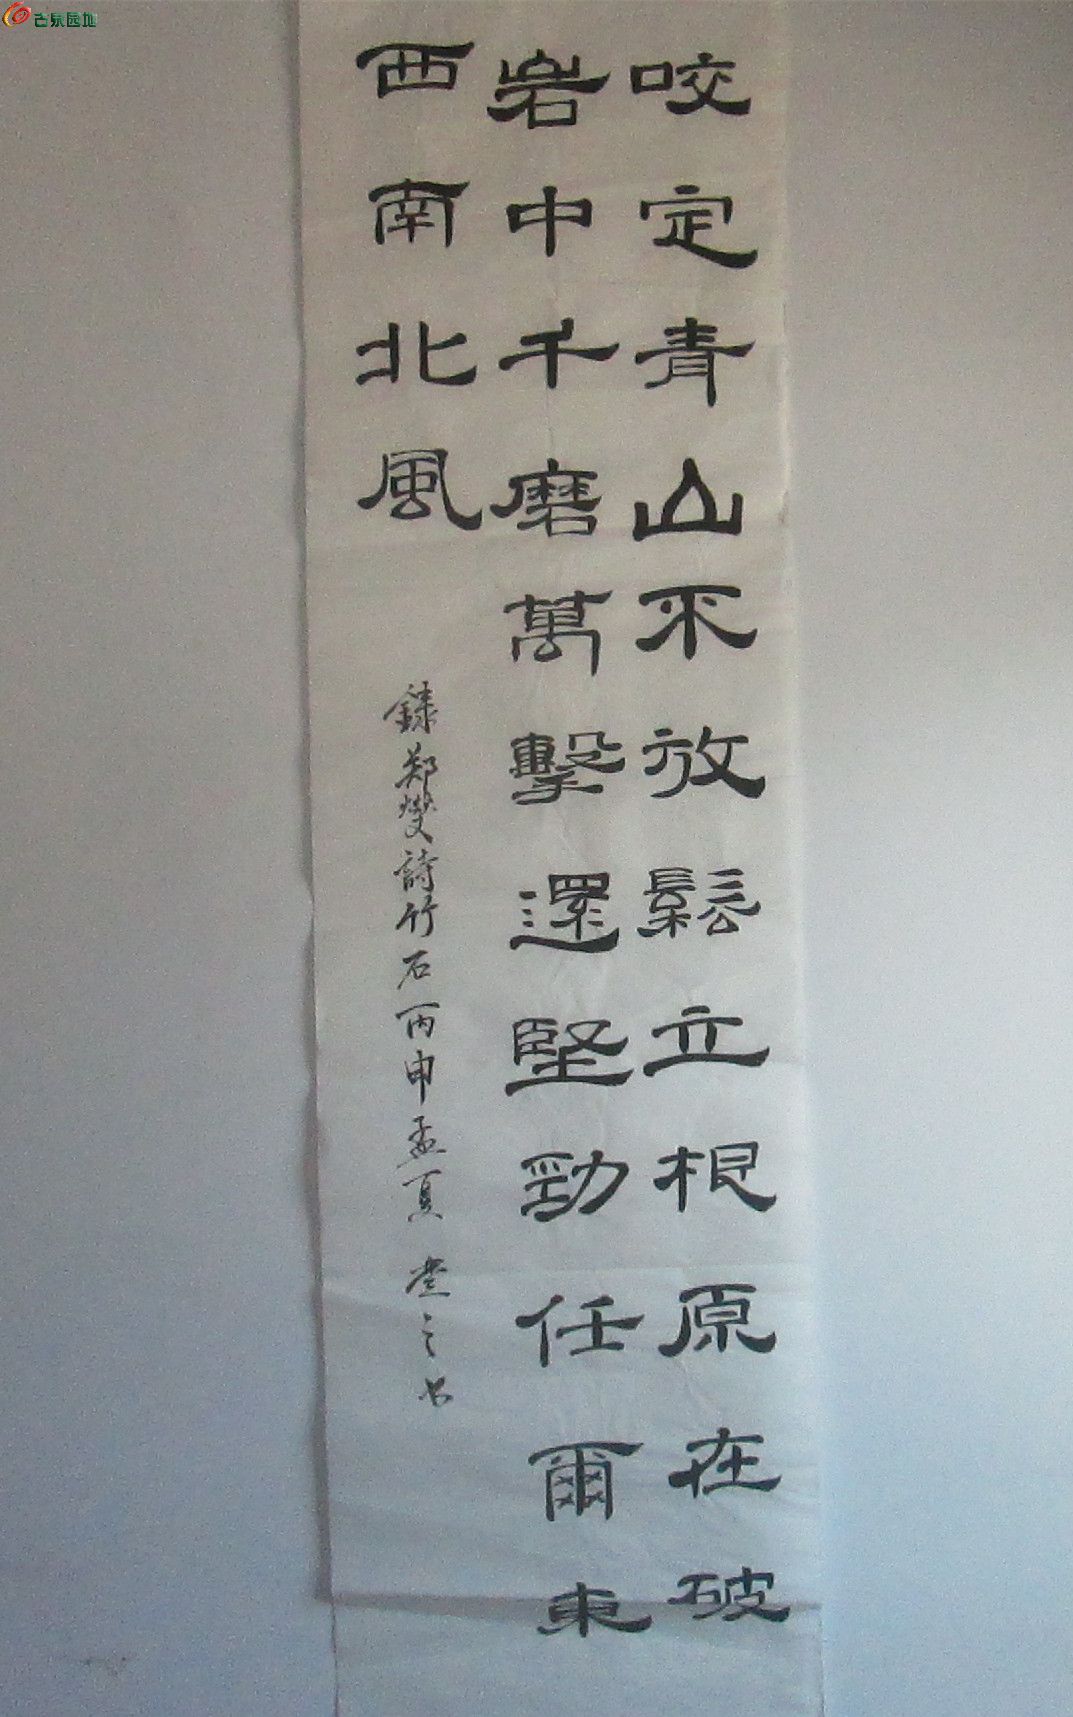 咬定青山不放鬆立根原在破
岩中千磨萬擊還堅勁任爾東
西南北風
錄鄭燮詩竹石丙申孟夏 堂之书
古泉园地